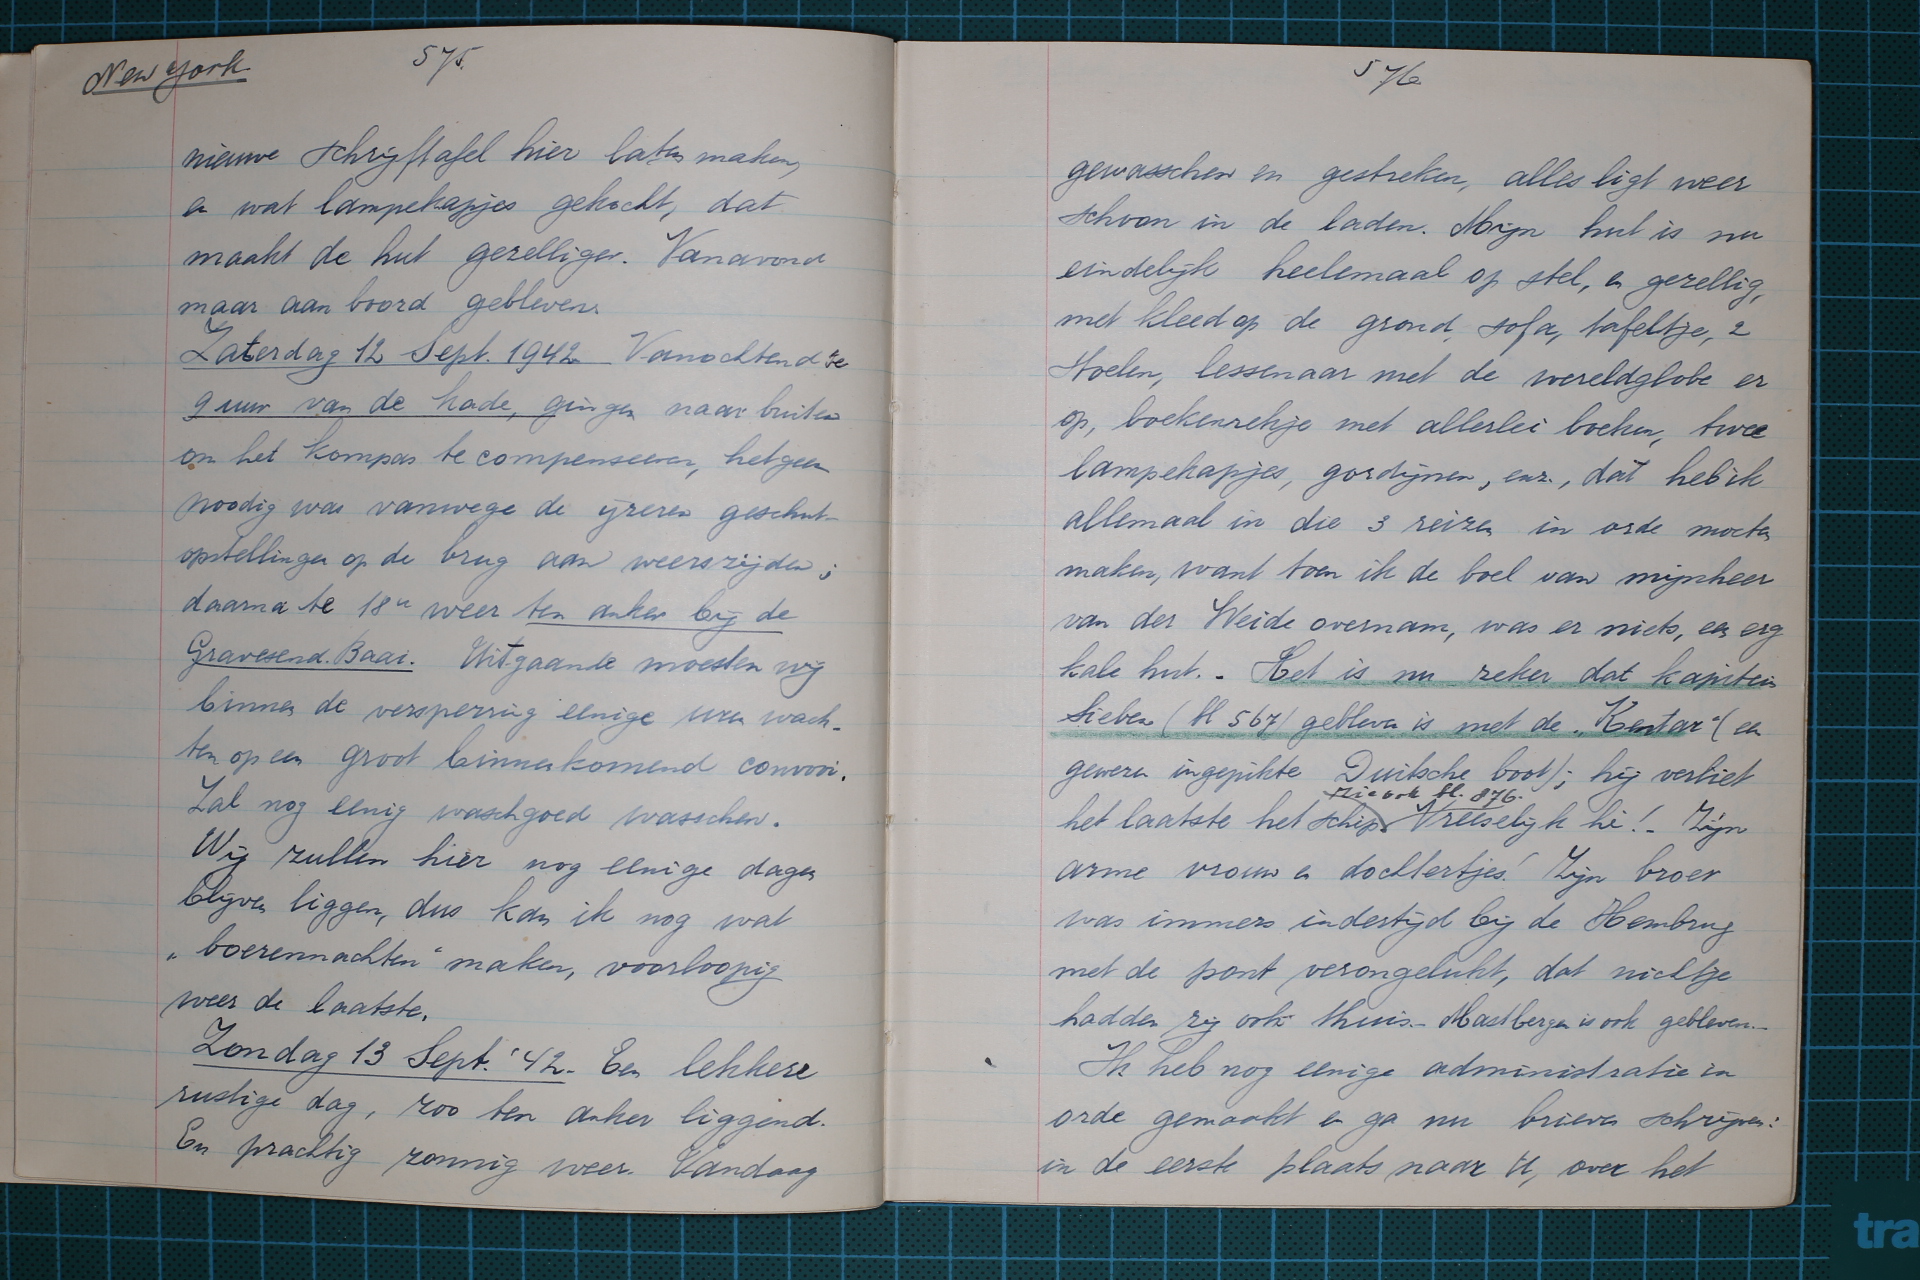 New York
575.
nieuwe schrijftafel hier laten maken,
en wat lampekapjes gekocht, dat
maakt de hut gezelliger. Vanavond
maar aan boord gebleven.
Zaterdag 12 Sept. 1942 Vanochtend te
9 uur van de kade, gingen naar buiten
om het kompas te compenseeren, hetgeen
noodig was vanwege de ijzeren geschut-
opstellingen op de brug aan weerszijden;
daarna te 18u weer ten anker bij de
Gravesend. Baai. Uitgaande moesten wij
binnen de versperring eenige uren wach-
ten op een groot binnenkomend convooi.
Zal nog eenig waschgoed wasschen.
Wij zullen hier nog eenige dagen
blijven liggen, dus kan ik nog wat
„boerennachten" maken, voorloopig
weer de laatste.
Zondag 13 Sept. '42. Een lekkere
rustige dag, zoo ten anker liggend.
En prachtig zonnig weer. Vandaag
576
gewasschen en gestreken, alles ligt weer
schoon in de laden. Mijn hut is nu
eindelijk heelemaal op stel, en gezellig,
met kleed op de grond, sofa, tafeltje, 2
stoelen, lessenaar met de wereldglobe er
op, boekenrekje met allerlei boeken, twee
lampekapjes, gordijnen, enz., dat heb ik
allemaal in die 3 reizen in orde moeten
maken, want toen ik de boel van mijnheer
van der Weide overnam, was er niets, een erg
kale hut. - Het is nu zeker dat kapitein
Sieben (bl 567) gebleven is met de „Kentar" (een
gewezen ingepikte Duitsche boot); hij verliet
zie ook bl. 876.
het laatste het schip. Vreeselijk hè! - Zijn
arme vrouw en dochtertjes! Zijn broer
was immers indertijd bij de Hembrug
met de pont verongelukt, dat nichtje
hadden zij ook thuis. - Mastbergen is ook gebleven. -
Ik heb nog eenige administratie in
orde gemaakt en ga nu brieven schrijven:
in de eerste plaats naar U, over het
tra